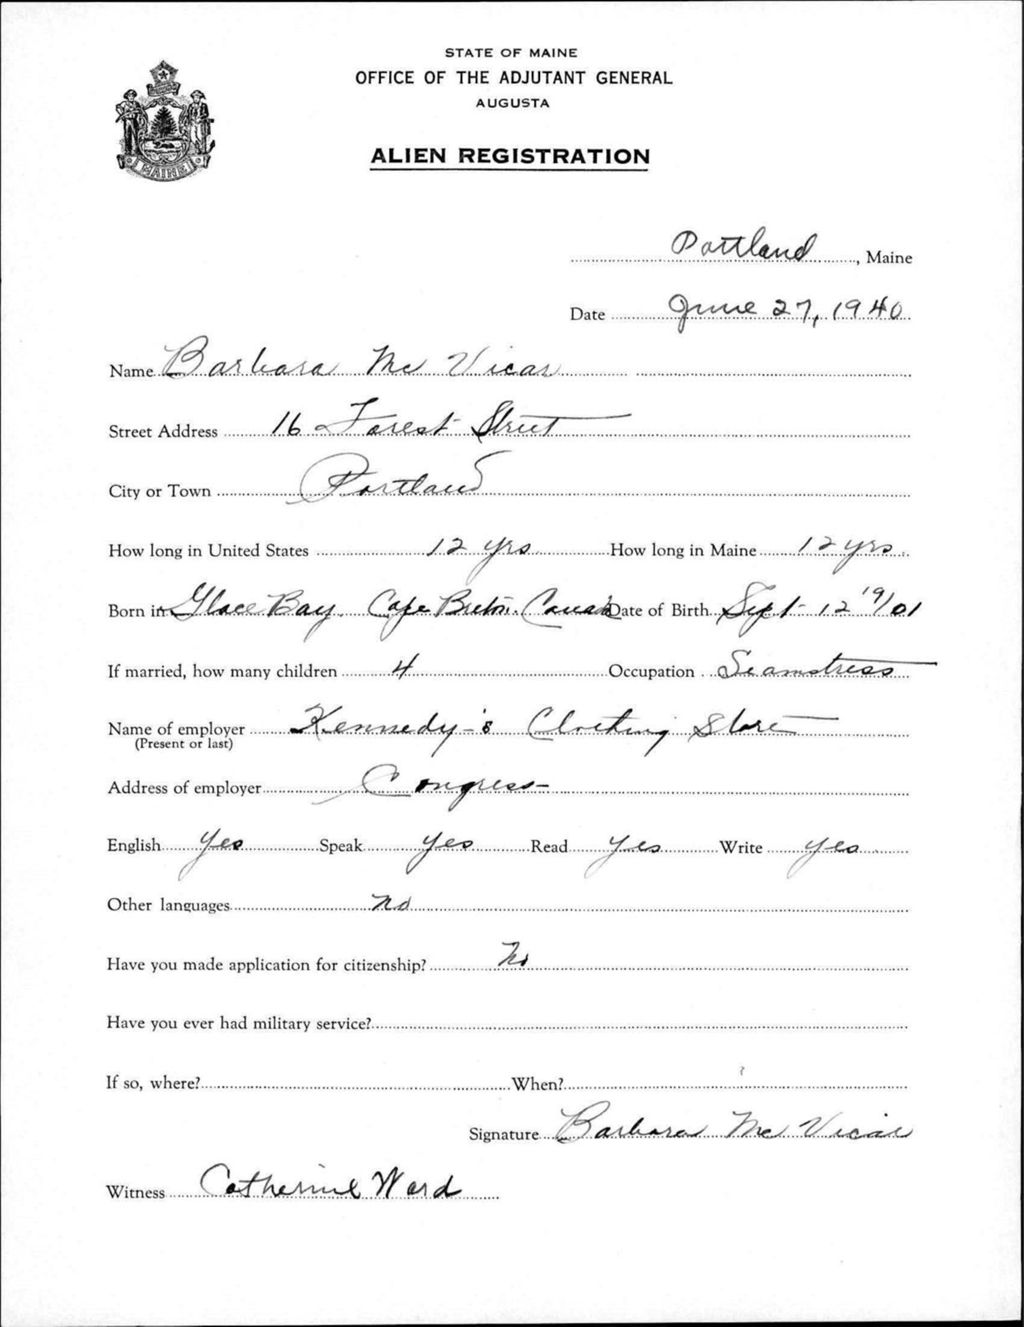 STATE OF MAINE
OFFICE OF THE ADJUTANT GENERAL
AUGUSTA
ALIEN REGISTRATION
MAINE
Portland, Maine
Date June 27, 1940
Name Barbara Mc Vicar
Street Address 16 Forest Street
City or Town Portland
How long in United States 12 yrs How long in Maine 12 yrs.
Born in Glace Bay Cape Breton Canada Date of Birth Sept 12 1901
If married, how many children 4 Occupation Seamstress
Name of employer Kennedy's Clothing Store
(Present or last)
Address of employer Congress
English Yes Speak yes Read Yes Write yes
Other languages No
Have you made application for citizenship? No
Have you ever had military service?
If so, where? When?
Signature Barbara Mc Vicar
Witness Catherine Ward